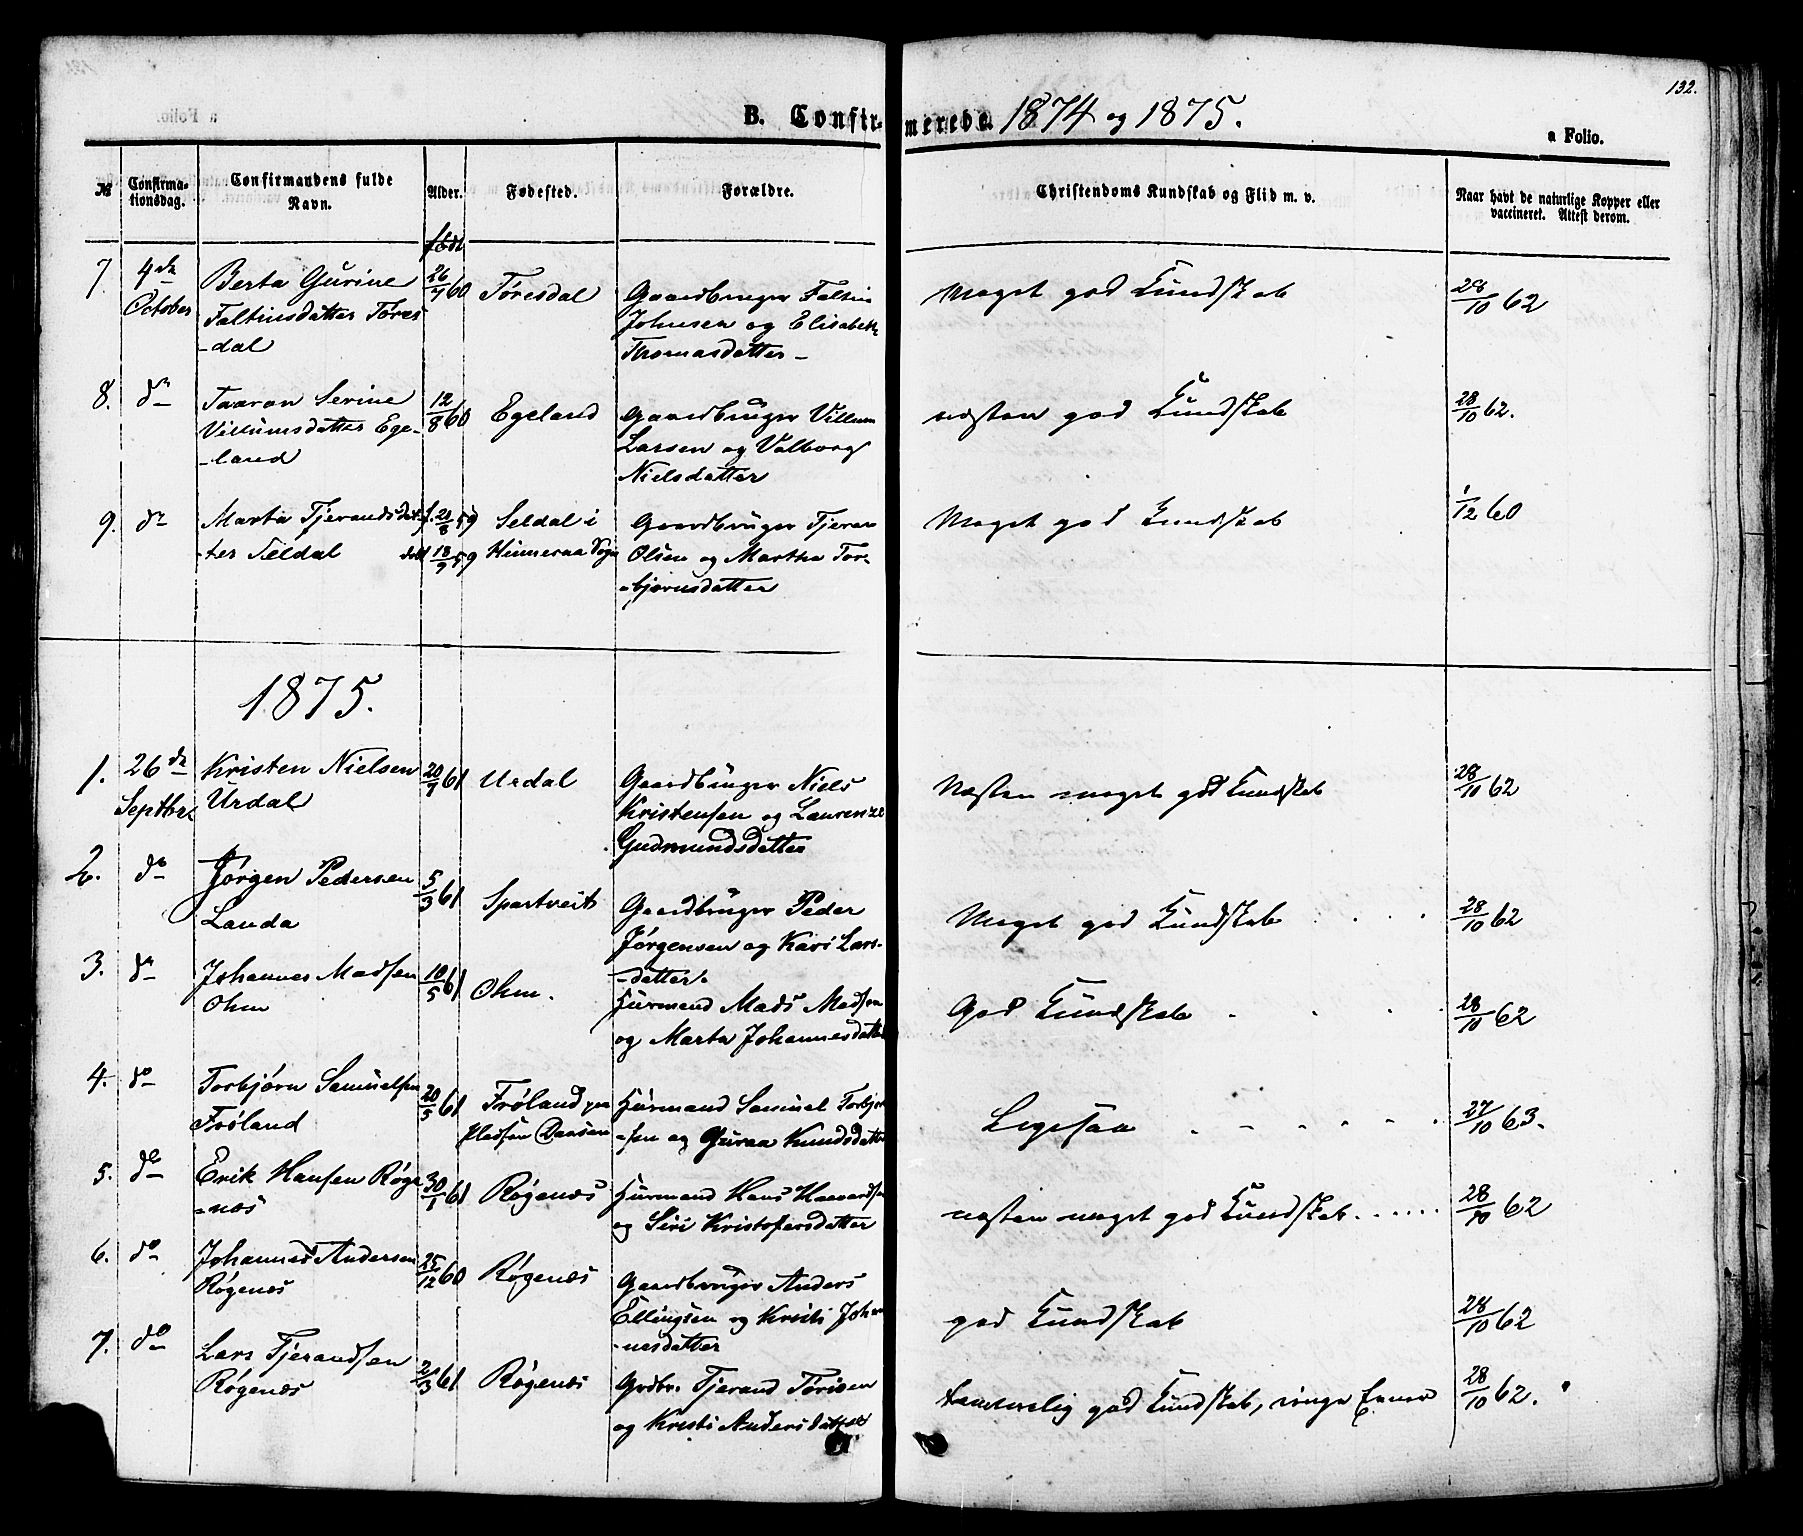 132.
B. Confirmerede. 1874 og 1875.
a Folio.
№
Confirmationsdag.
Confirmandens fulde Navn.
Alder.
Fødested.
Forældre.
Christendoms Kundskab og Flid m. v.
Naar havt de naturlige Kopper eller vaccineret. Attest derom.
født
7. 4de Berta Gurine 26/7 60 Tøresdal Gaardbruger Faltin Meget god Kundskab 28/10 62
October Faltinsdatter Tøres Johnsen og Elisabeth
-dal Thomasdatter -
8. do Taaran Serine 12/8 60 Egeland Gaardbruger Villum næsten god Kundskab 28/10 62.
Villumsdatter Ege- Larsen og Valborg
-land Nielsdatter
9. do Marta Tjerandsdat- f. 21/8 59 Seldal i Gaardbruger Tjeran Meget god Kundskab 1/12 60
-ter Seldal døbt 18/9 59 Hinneraa Sogn Olsen og Martha Tor-
-bjørnsdatter
1875.
1. 26de Kristen Nielsen 20/9 61 Urdal Gaardbruger Niels Næsten meget god Kundskab 28/10 62
Septbr Urdal Kristensen og Laurenze
Gudmundsdatter
2. do Jørgen Pedersen 5/3 61 Spartveit Gaardbruger Peder Meget god Kundskab 28/10 62
Landa Jørgensen og Kari Lars-
-datter.
3. do Johannes Madsen 10/5 61 Ohm. Huusmand Mads Madsen God Kundskab 28/10 62
Ohm og Marta Johannesdatter
4. do Torbjørn Samuelsen 20/5 61 Frøland paa Huusmand Samuel Torbjør Ligesaa 27/10 63.
Frøland Pladsen -sen og Guraa Knudsdatter
5. do Erik Hansen Røge 30/1 61 Røgenæs Huusmand Hans Haavardsen næsten meget god Kundskab 28/10 62
-næs og Siri Kristofersdatter
6. do Johannes Andersen 25/12 60 Røgenæs Gaardbruger Anders god Kundskab 28/10 62
Røgenæs Ellingsen og Kristi Johan
-nesdatter
7. do Lars Tjerandsen 2/3 61 Røgenæs Grdbr. Tjerand Tørisen temmelig god Kundskab, ringe Evner 28/10 62.
Røgenæs og Kristi Andersdatter